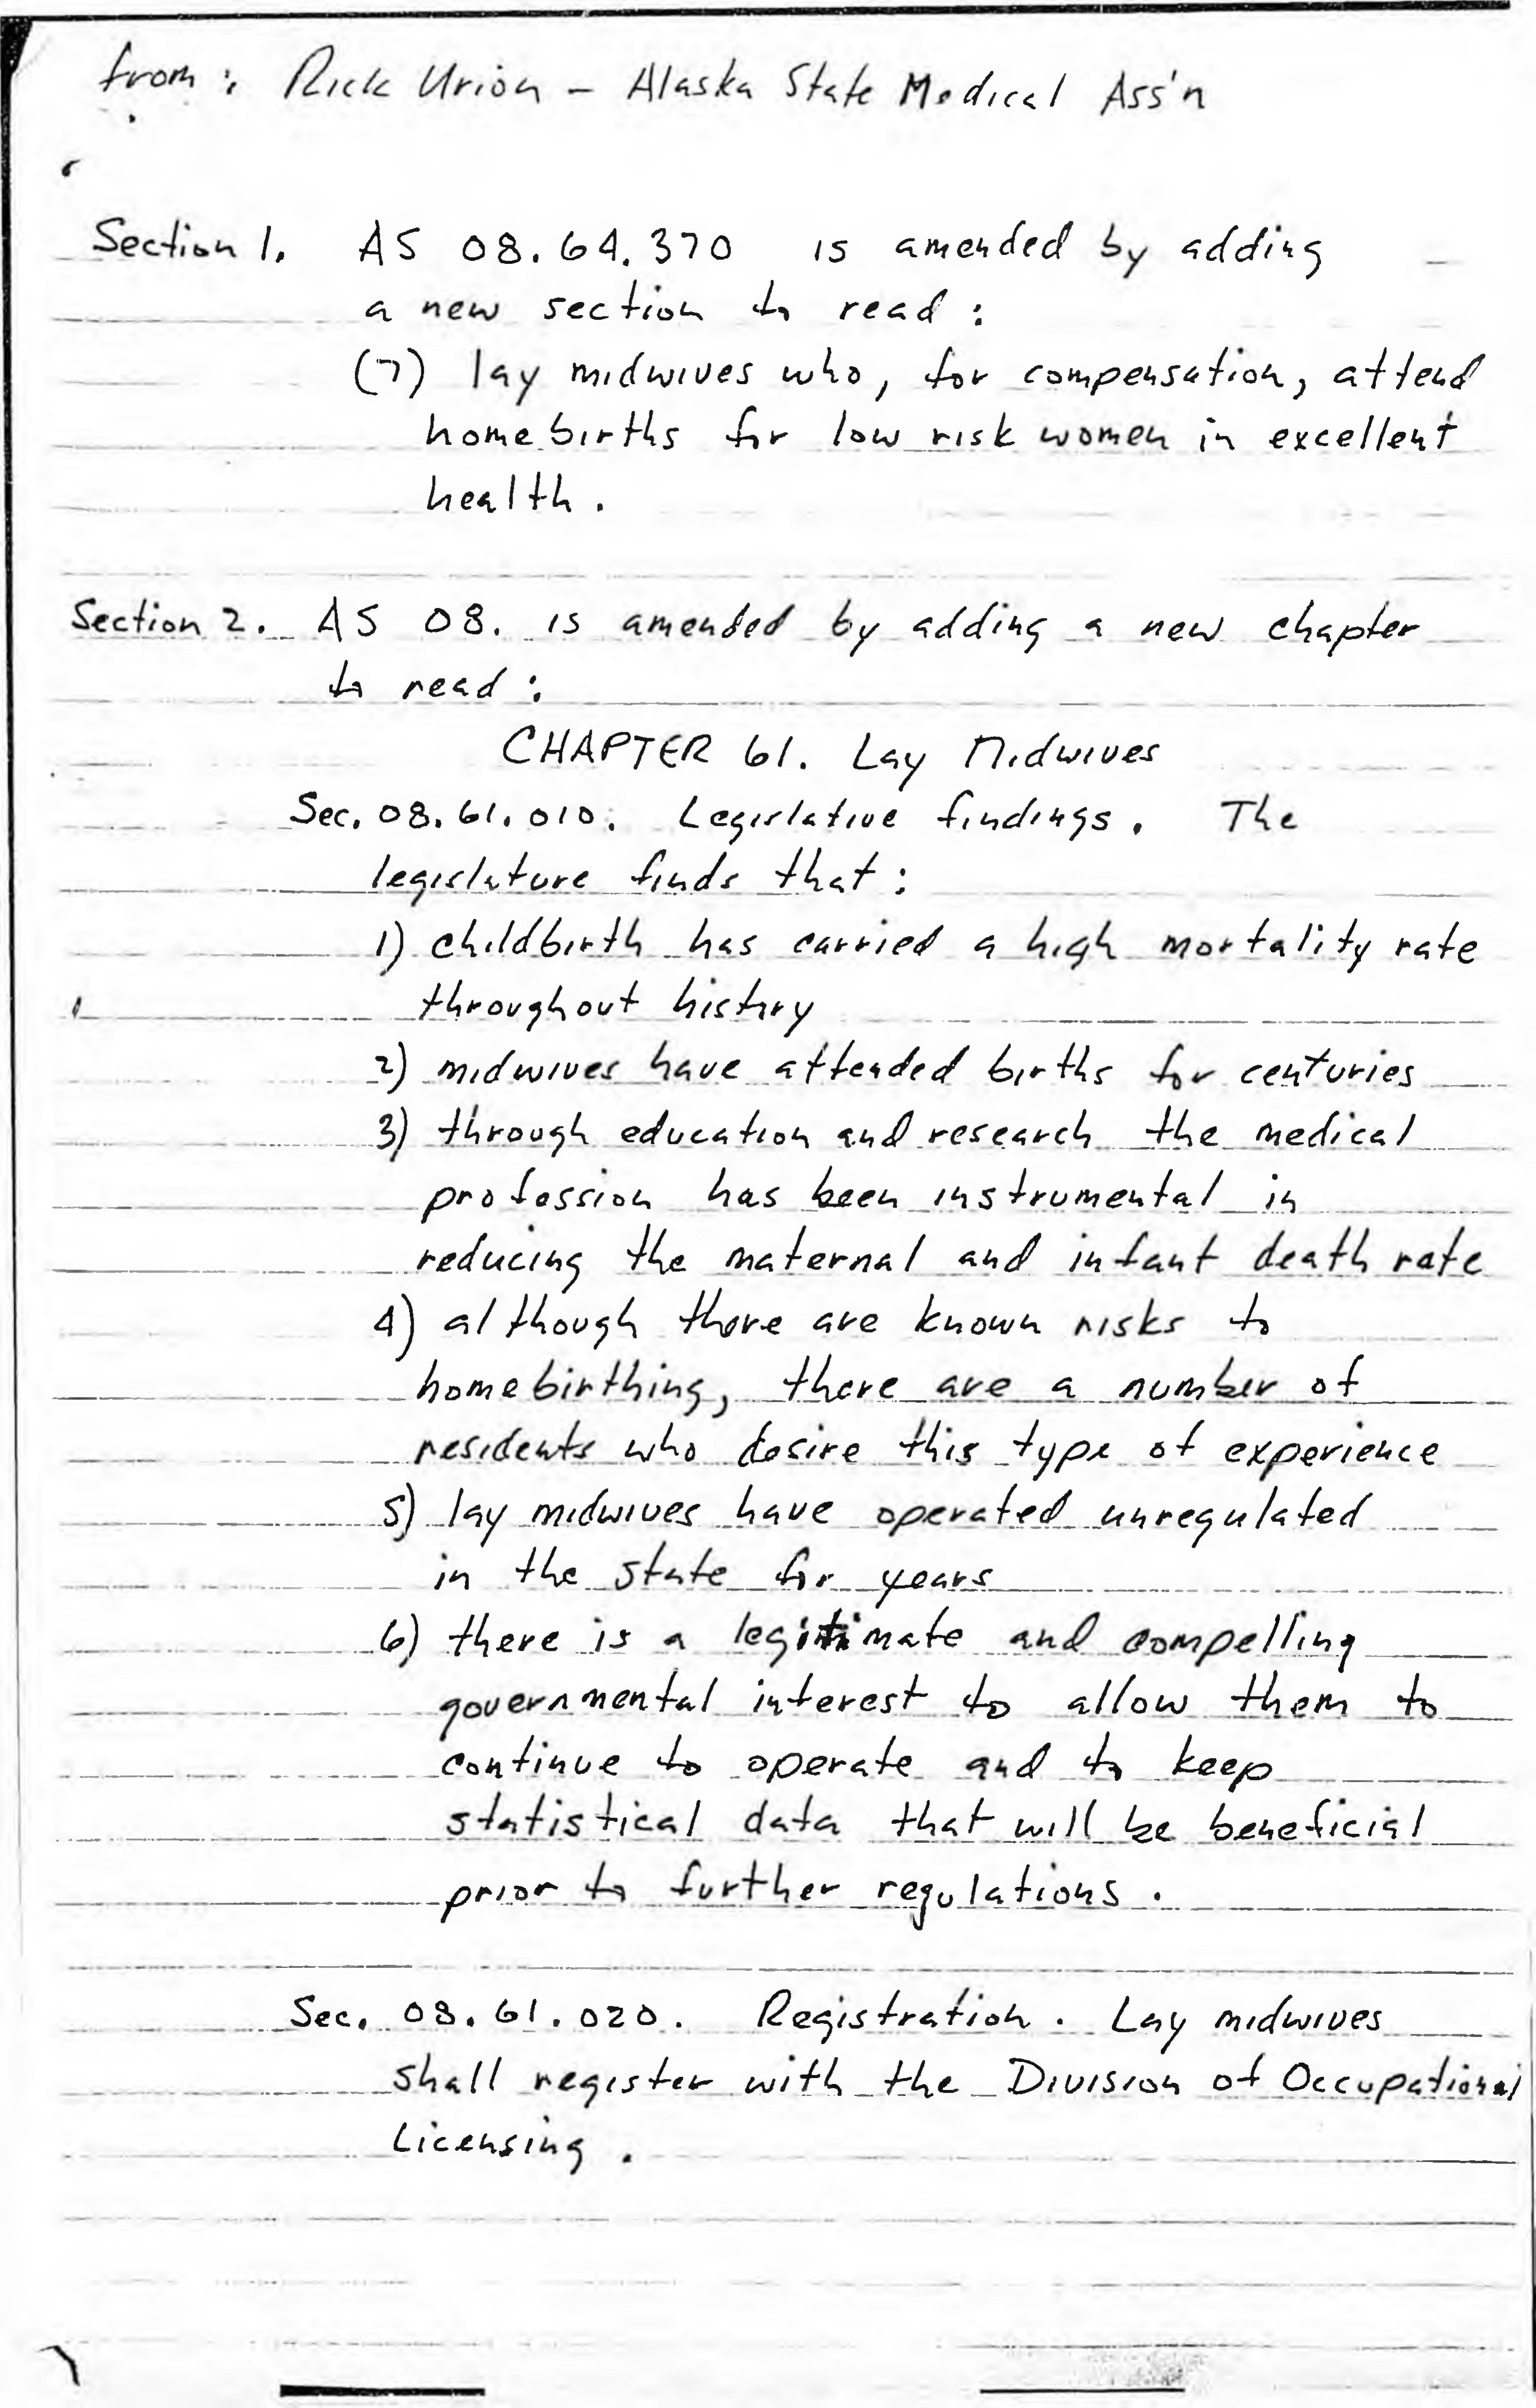 from: Rick Urion - Alaska State Medical Ass'n
Section 1. AS 08.64.370 is amended by adding
a new section to read:
(7) lay midwives who, for compensation, attend
homebirths for low risk women in excellent
health.
Section 2. AS 08. is amended by adding a new chapter
to read:
CHAPTER 61. Lay Midwives
Sec. 08.61.010. Legislative findings. The
legislature finds that:
1) childbirth has carried a high mortality rate
throughout history
2) midwives have attended births for centuries
3) through education and research the medical
profession has been instrumental in
reducing the maternal and infant death rate
4) although there are known risks to
homebirthing, there are a number of
residents who desire this type of experience
5) lay midwives have operated unregulated
in the state for years
6) there is a legitimate and compelling
governmental interest to allow them to
continue to operate and to keep
statistical data that will be beneficial
prior to further regulations.
Sec. 08.61.020. Registration. Lay midwives
shall register with the Division of Occupational
Licensing.